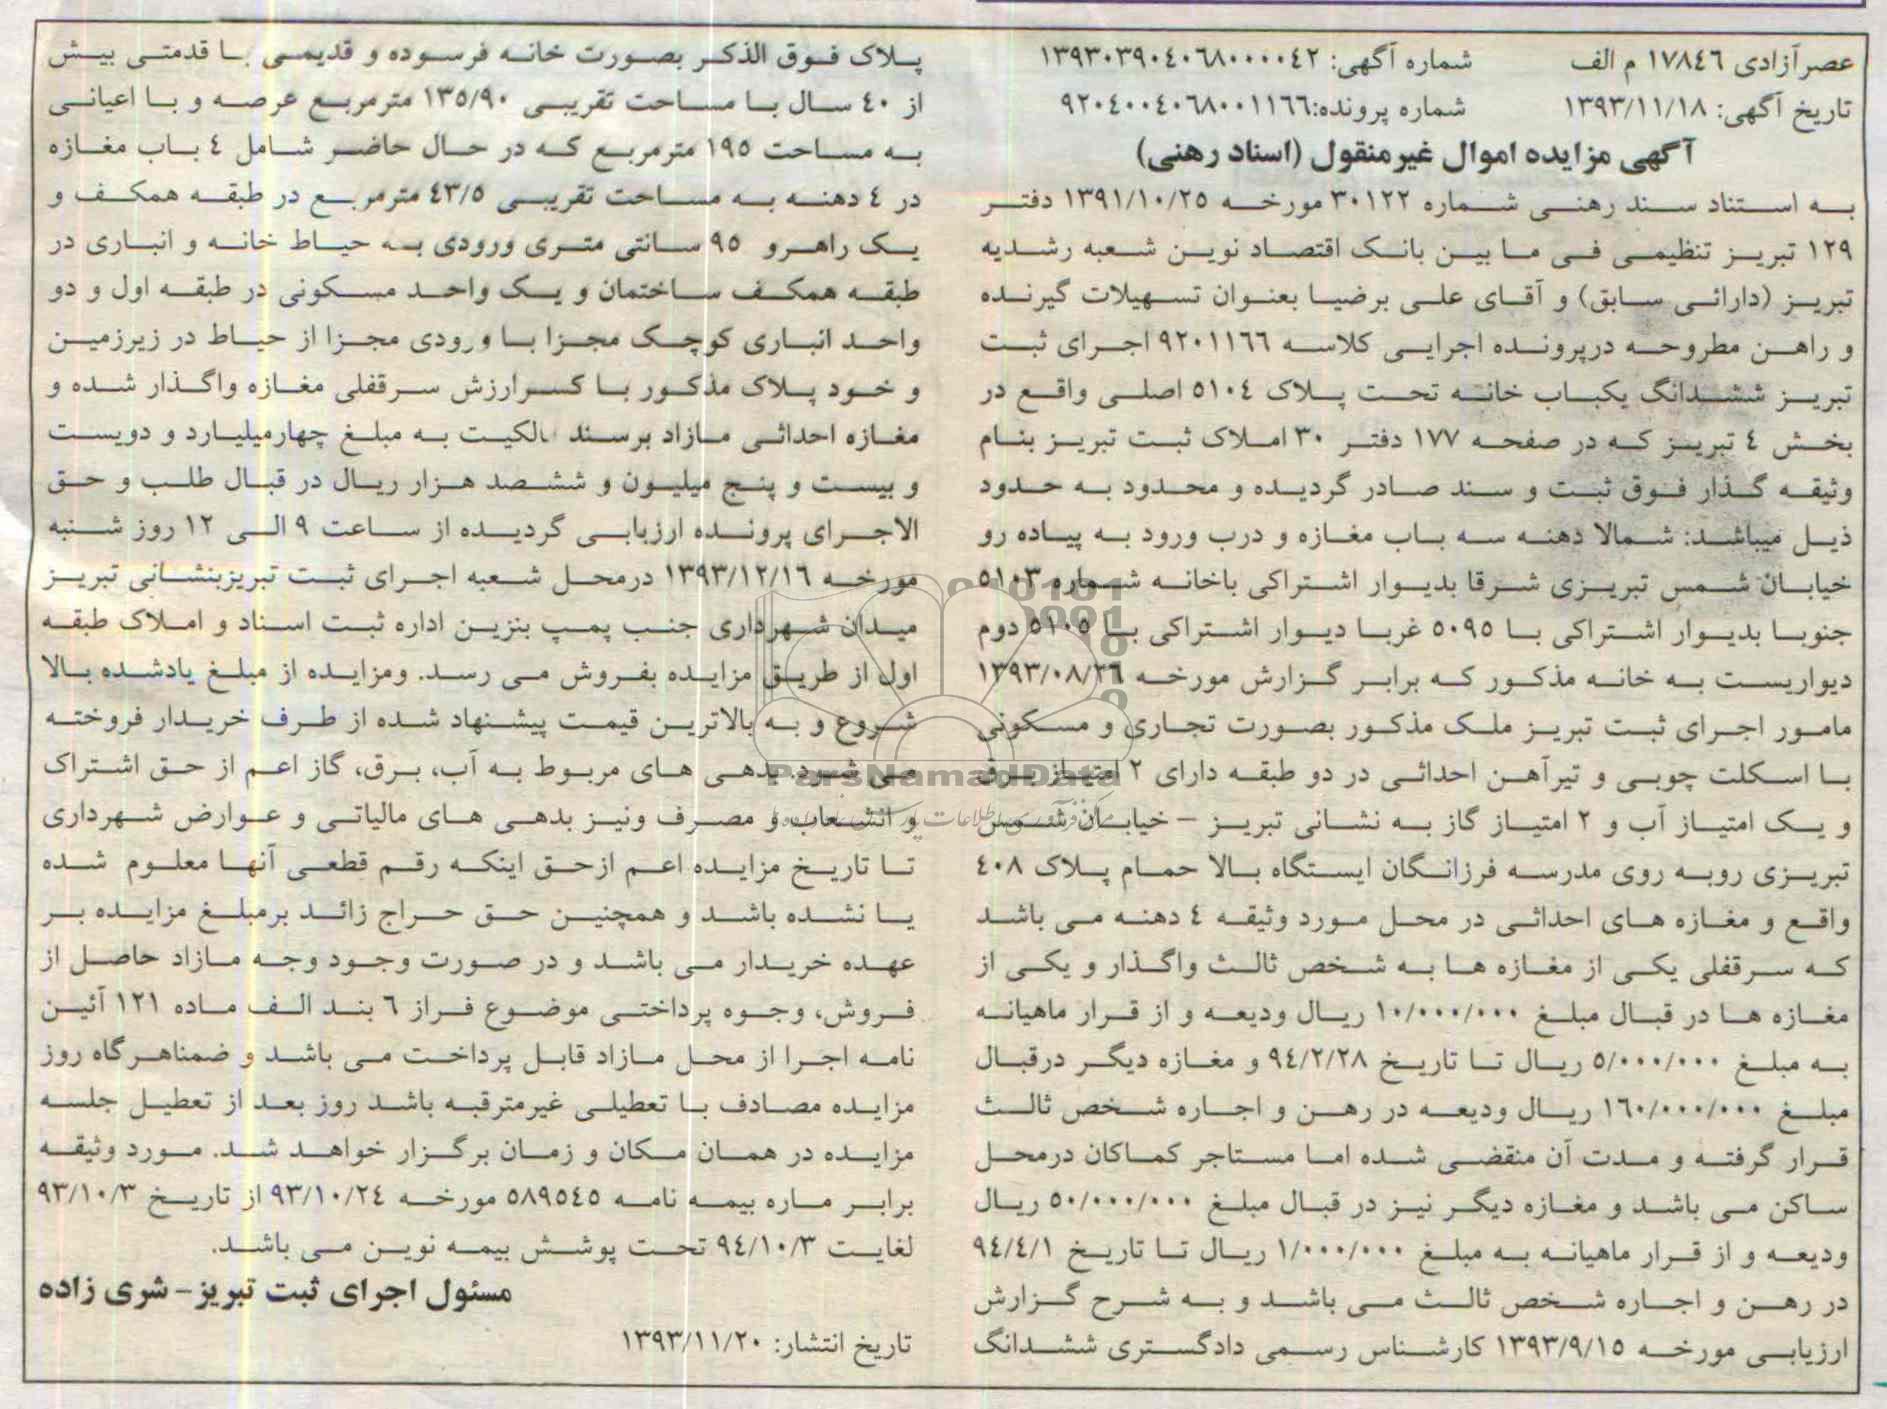 عصرآزادی ١٧٨٤٦ م الف
شماره آگهی: ١٣٩٣٠٣٩٠٤٠٦٨٠٠٠٠٤٢
تاریخ آگهی: ١٣٩٣/١١/١٨
شماره پرونده:٩٢٠٤٠٠٤٠٦٨٠٠١١٦٦
آگهی مزایده اموال غیرمنقول (اسناد رهنی)
به استناد سند رهنی شماره ٣٠١٢٢ مورخه ١٣٩١/١٠/٢٥ دفتر
١٢٩ تبریز تنظیمی فی ما بین بانک اقتصاد نوین شعبه رشدیه
تبریز (دارائی سابق) و آقای علی برضیا بعنوان تسهیلات گیرنده
و راهن مطروحه درپرونده اجرایی کلاسه ٩٢٠١١٦٦ اجرای ثبت
تبریز ششدانگ یکباب خانه تحت پلاک ٥١٠٤ اصلی واقع در
بخش ٤ تبریز که در صفحه ١٧٧ دفتر ٣٠ املاک ثبت تبریز بنام
وثیقه گذار فوق ثبت و سند صادر گردیده و محدود به حدود
ذیل میباشد: شمالا دهنه سه باب مغازه و درب ورود به پیاده رو
خیابان شمس تبریزی شرقا بدیوار اشتراکی باخانه شماره ٥١٠٣
جنوبا بدیوار اشتراکی با ٥٠٩٥ غربا دیوار اشتراکی با ٥١٠٥ دوم
دیواریست به خانه مذکور که برابر گزارش مورخه ١٣٩٣/٠٨/٢٦
مامور اجرای ثبت تبریز ملک مذکور بصورت تجاری و مسکونی
با اسکلت چوبی و تیرآهن احداثی در دو طبقه دارای ٢ امتیاز برق
و یک امتیاز آب و ٢ امتیاز گاز به نشانی تبریز – خیابان شمس
تبریزی روبه روی مدرسه فرزانگان ایستگاه بالا حمام پلاک ٤٠٨
واقع و مغازه های احداثی در محل مورد وثیقه ٤ دهنه می باشد
که سرقفلی یکی از مغازه ها به شخص ثالث واگذار و یکی از
مغازه ها در قبال مبلغ ١٠/٠٠٠/٠٠٠ ریال ودیعه و از قرار ماهیانه
به مبلغ ٥/٠٠٠/٠٠٠ ریال تا تاریخ ٩٤/٢/٢٨ و مغازه دیگر درقبال
مبلغ ١٦٠/٠٠٠/٠٠٠ ریال ودیعه در رهن و اجاره شخص ثالث
قرار گرفته و مدت آن منقضی شده اما مستاجر کماکان درمحل
ساکن می باشد و مغازه دیگر نیز در قبال مبلغ ٥٠/٠٠٠/٠٠٠ ریال
ودیعه و از قرار ماهیانه به مبلغ ١/٠٠٠/٠٠٠ ریال تا تاریخ ٩٤/٤/١
در رهن و اجاره شخص ثالث می باشد و به شرح گزارش
ارزیابی مورخه ١٣٩٣/٩/١٥ کارشناس رسمی دادگستری ششدانگ
پلاک فوق الذکر بصورت خانه فرسوده و قدیمی با قدمتی بیش
از ٤٠ سال با مساحت تقریبی ١٣٥/٩٠ مترمربع عرصه و با اعیانی
به مساحت ١٩٥ مترمربع که در حال حاضر شامل ٤ باب مغازه
در ٤ دهنه به مساحت تقریبی ٤٣/٥ مترمربع در طبقه همکف و
یک راهرو ٩٥ سانتی متری ورودی به حیاط خانه و انباری در
طبقه همکف ساختمان و یک واحد مسکونی در طبقه اول و دو
واحد انباری کوچک مجزا با ورودی مجزا از حیاط در زیرزمین
و خود پلاک مذکور با کسرارزش سرقفلی مغازه واگذار شده و
مغازه احداثی مازاد برسند مالکیت به مبلغ چهارمیلیارد و دویست
و بیست و پنج میلیون و ششصد هزار ریال در قبال طلب و حق
الاجرای پرونده ارزیابی گردیده از ساعت ٩ الی ١٢ روز شنبه
مورخه ١٣٩٣/١٢/١٦ درمحل شعبه اجرای ثبت تبریزبنشانی تبریز
میدان شهرداری جنب پمپ بنزین اداره ثبت اسناد و املاک طبقه
اول از طریق مزایده بفروش می رسد. ومزایده از مبلغ یادشده بالا
شروع و به بالاترین قیمت پیشنهاد شده از طرف خریدار فروخته
می شود. بدهی های مربوط به آب، برق، گاز اعم از حق اشتراک
و انشعاب و مصرف ونیز بدهی های مالیاتی و عوارض شهرداری
تا تاریخ مزایده اعم ازحق اینکه رقم قطعی آنها معلوم شده
یا نشده باشد و همچنین حق حراج زائد برمبلغ مزایده بر
عهده خریدار می باشد و در صورت وجود وجه مازاد حاصل از
فروش، وجوه پرداختی موضوع فراز ٦ بند الف ماده ١٢١ آئین
نامه اجرا از محل مازاد قابل پرداخت می باشد و ضمناهرگاه روز
مزایده مصادف با تعطیلی غیرمترقبه باشد روز بعد از تعطیل جلسه
مزایده در همان مکان و زمان برگزار خواهد شد. مورد وثیقه
برابر ماره بیمه نامه ٥٨٩٥٤٥ مورخه ٩٣/١٠/٢٤ از تاریخ ٩٣/١٠/٣
لغایت ٩٤/١٠/٣ تحت پوشش بیمه نوین می باشد.
مسئول اجرای ثبت تبریز- شری زاده
تاریخ انتشار: ١٣٩٣/١١/٢٠
ParsNamadData